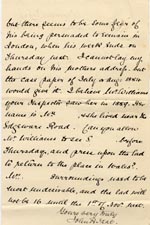 but there seems to be some fear of
his being persuaded to remain in
London, when his week ends on
Thursday next. I cannot lay my
hands on his mothers address, but
the case paper of July or Aug. 1884
would give it. I believe Mr Williams
your Inspector saw her in 1884. Her
name is Mrs she lived near the
Edgware Road. Can you allow
Mr Williams to see before
Thursday, and press upon the lad
to return to the place in Wales?
Mrs surroundings used to be
most undesirable, and the lad will
not be 16 until the 1st of Nov. next.
Yours very truly
John H.